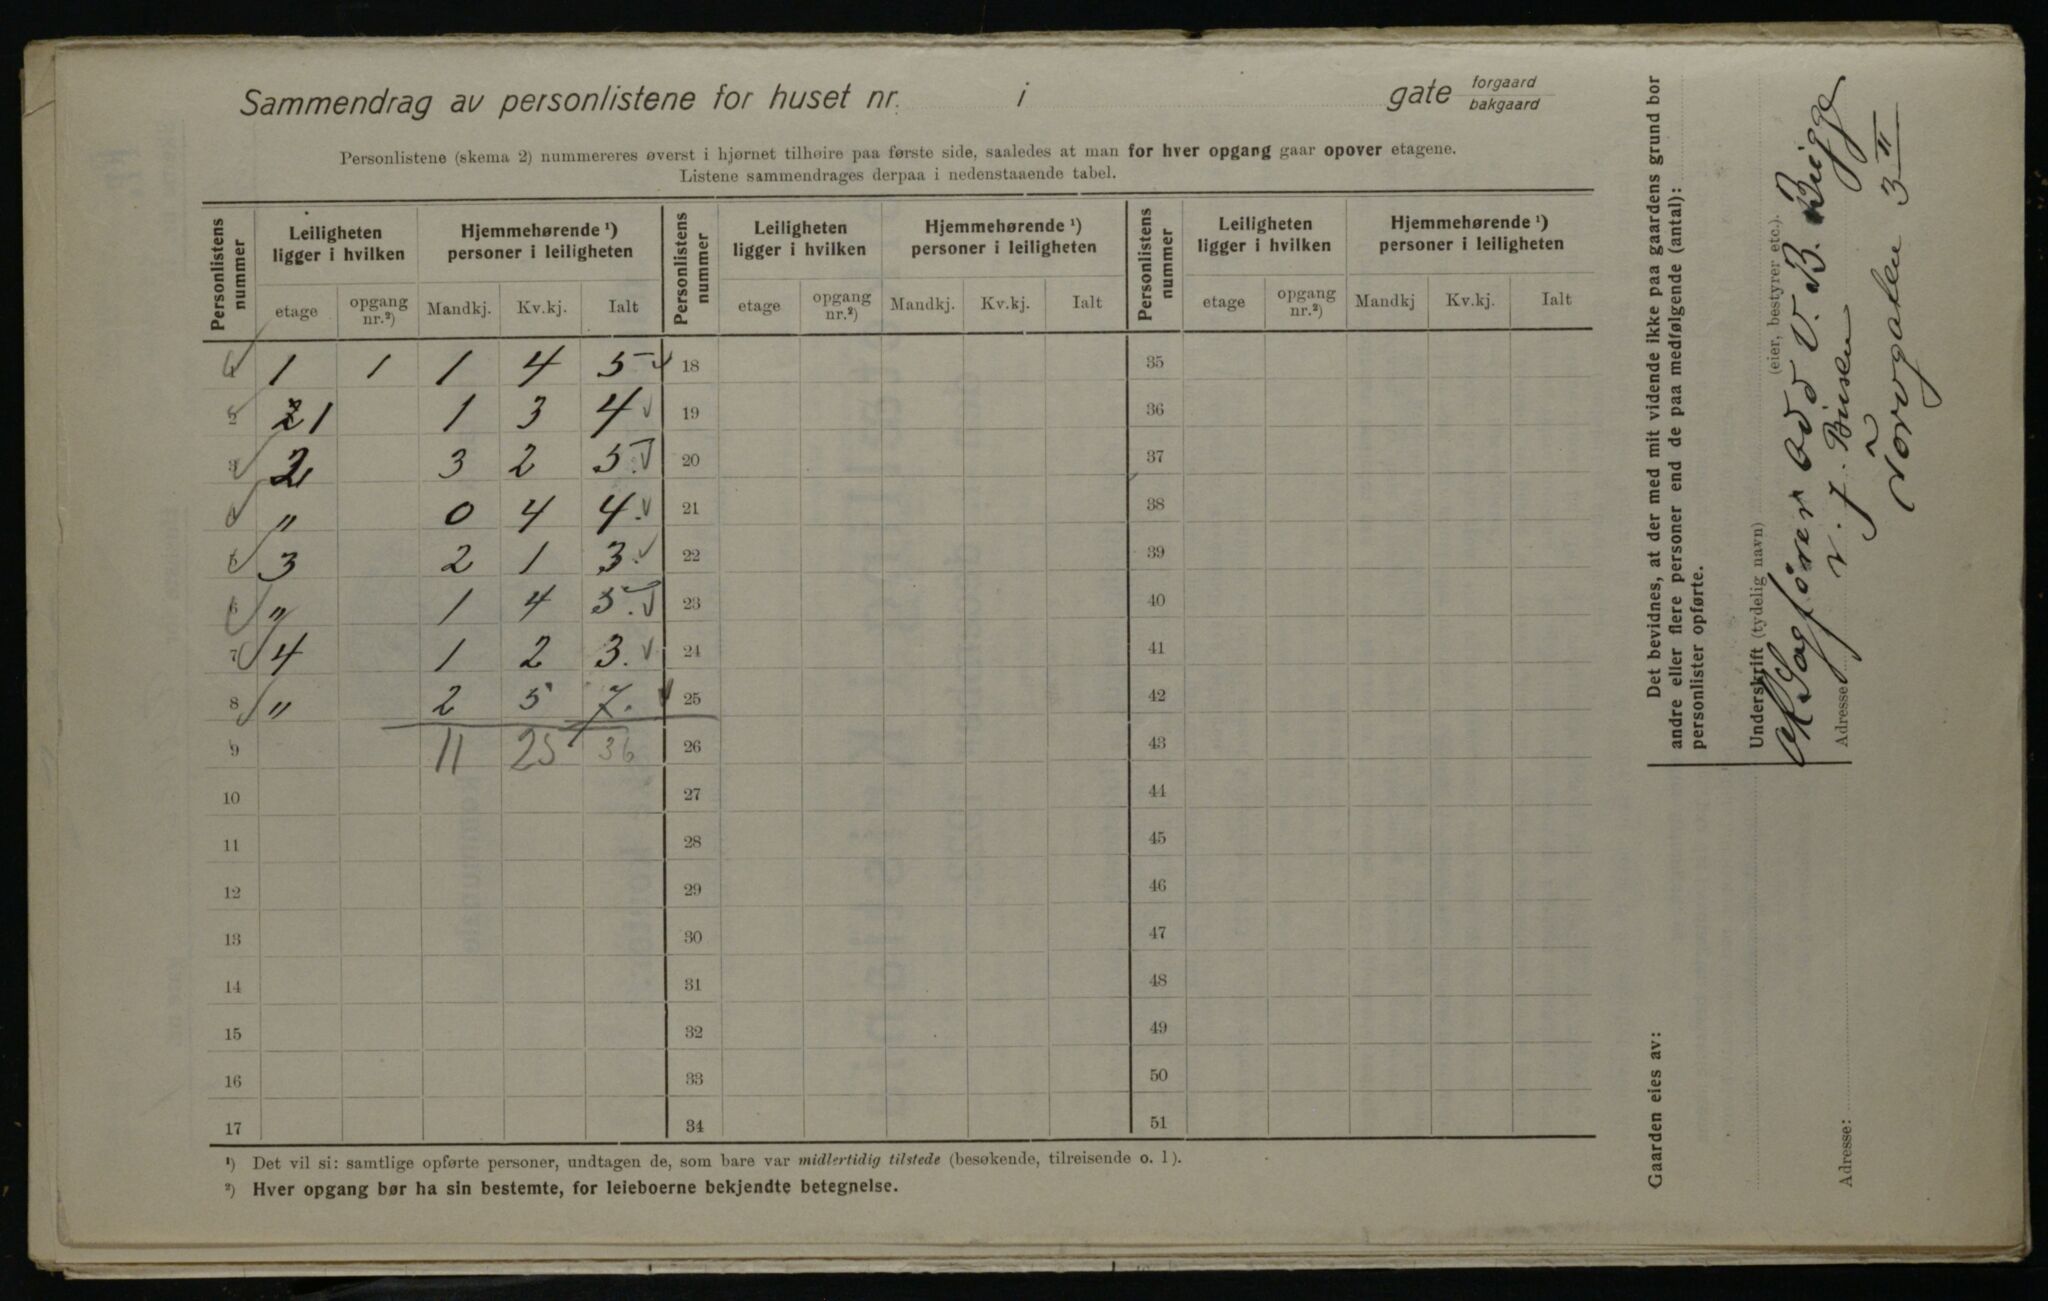 Sammendrag av personlistene for huset nr. i gate forgaard bakgaard
Personlistene (skema 2) nummereres øverst i hjørnet tilhøire paa første side, saaledes at man for hver opgang gaar opover etagene.
Listene sammendrages derpaa i nedenstaaende tabel.
Personlistens nummer Leiligheten ligger i hvilken Hjemmehørende ¹) personer i leiligheten Personlistens nummer Leiligheten ligger i hvilken Hjemmehørende ¹) personer i leiligheten Personlistens nummer Leiligheten ligger i hvilken Hjemmehørende ¹) personer i leiligheten
etage opgang nr.²) Mandkj. Kv.kj. Ialt etage opgang nr.²) Mandkj. Kv.kj. Ialt etage opgang nr.²) Mandkj Kv.kj. Ialt
1 1 1 1 4 5 18 35
2 1 1 3 4 19 36
3 2 3 2 5. 20 37
4 " 0 4 4. 21 38
5 3 2 1 3. 22 39
6 " 1 4 5. 23 40
7 4 1 2 3. 24 41
8 " 2 5 7. 25 42
9 11 25 36 26 43
10 27 44
11 28 45
12 29 46
13 30 47
14 31 48
15 32 49
16 33 50
17 34 51
¹) Det vil si: samtlige opførte personer, undtagen de, som bare var midlertidig tilstede (besøkende, tilreisende o. l).
²) Hver opgang bør ha sin bestemte, for leieboerne bekjendte betegnelse.
Det bevidnes, at der med mit vidende ikke paa gaardens grund bor
andre eller flere personer end de paa medfølgende (antal):
personlister opførte.
Underskrift (tydelig navn) (eier, bestyrer etc.).
Sagfører Odd V. B. Bigge
Adresse
Torvgaten 3 II
Gaarden eies av:
Adresse: